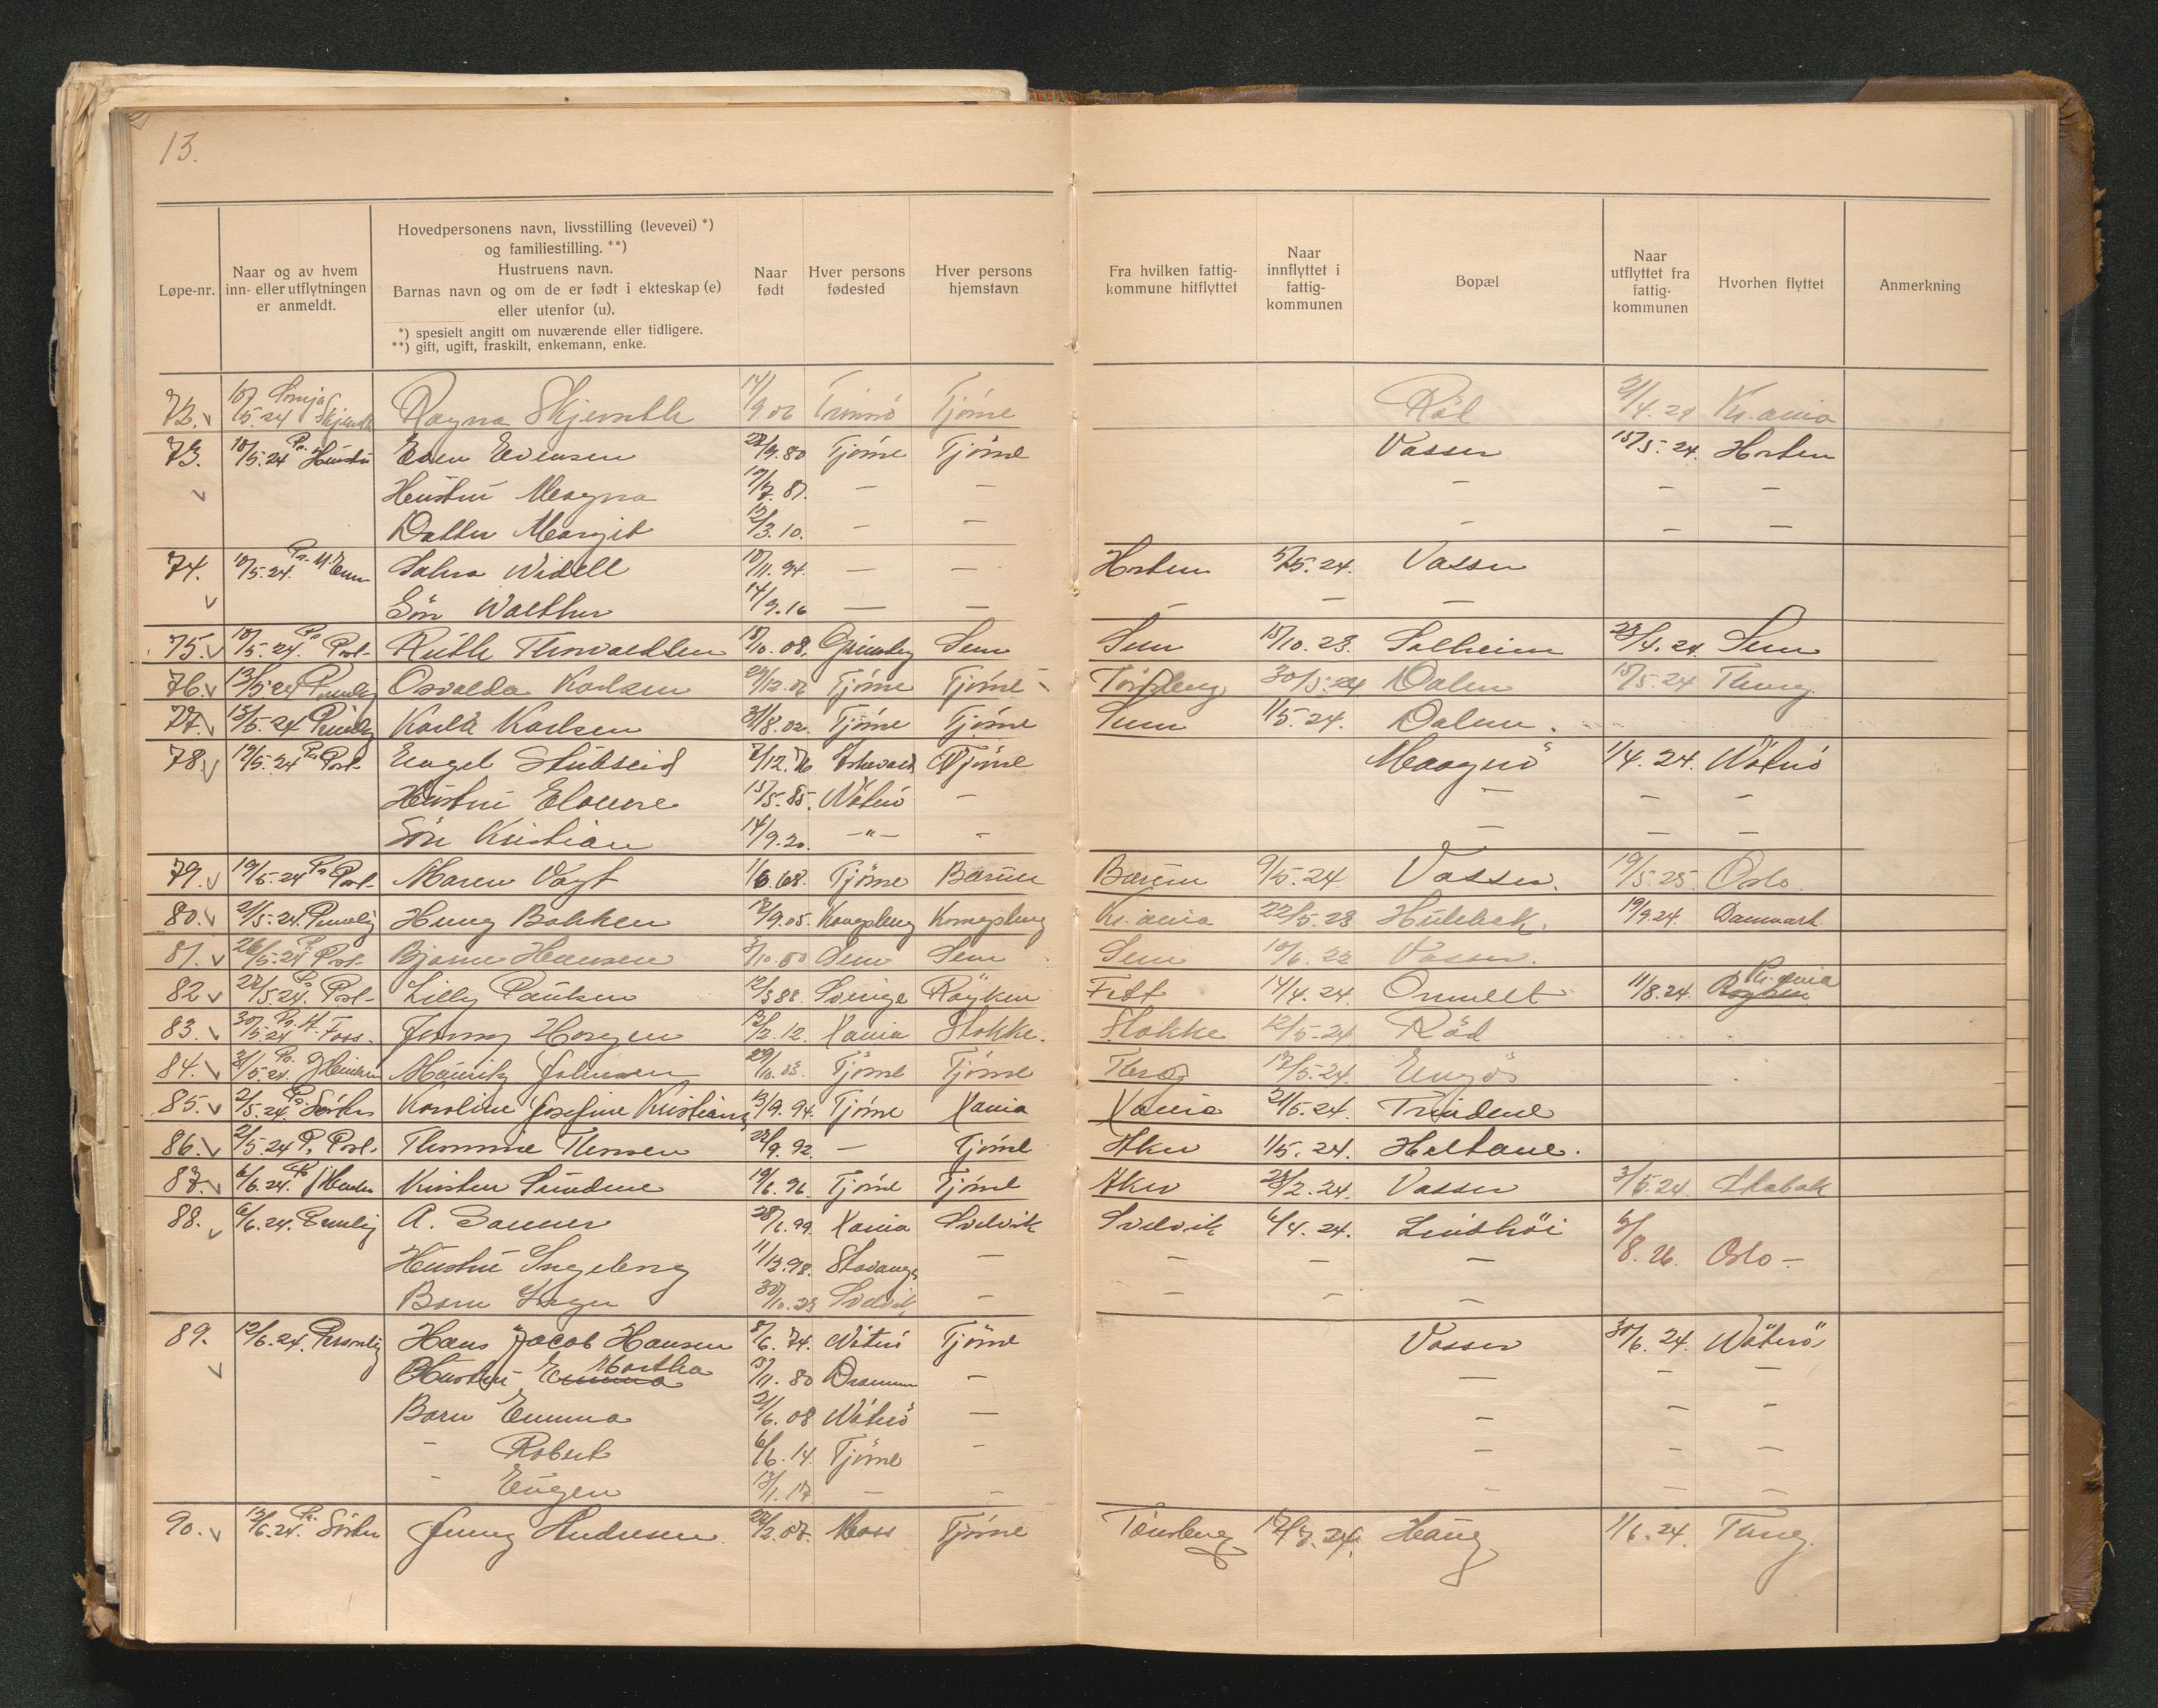 13.
Løpe-nr.
Naar og av hvem
inn- eller utflytningen
er anmeldt.
Hovedpersonens navn, livsstilling (levevei) *)
og familiestilling. **)
Hustruens navn.
Barnas navn og om de er født i ekteskap (e)
eller utenfor (u).
*) spesielt angitt om nuværende eller tidligere.
**) gift, ugift, fraskilt, enkemann, enke.
Naar
født
Hver persons
fødested
Hver persons
hjemstavn
Fra hvilken fattig-
kommune hitflyttet
Naar
innflyttet i
fattig-
kommunen
Bopæl
Naar
utflyttet fra
fattig-
kommunen
Hvorhen flyttet
Anmerkning
72. 10/5.24 Ragna 14/9.06 Tromsö Tjöme Röd Kr.ania
73. 10/5.24 Pr. Hustru Even Evensen 22/9.80 Tjöme Tjöme Vasser 15/5.24. Horten
Hustru Magna 17/7.87. — — — — —
Datter Margit 12/3.10. — — — — —
74. 10/5.24. Salma Widell 10/11.94. — — Horten 5/5.24. Vasser
Sön Walther 14/9.16 — — — — —
75. 10/5.24. Pr Post- Ruth Thorvaldsen 18/10.08. Grimsby Sem Sem 15/10.23. Solheim 23/4.24 Sem
76. 13/5.24 Osvalda Karlsen 29/12.06 Tjöme Tjöme Tönsberg 30/5.24 Dalen 15/5.24 Tbreg.
77. 13/5.24 Karla Karlsen 31/8.02. Tjöme Tjöme Sem 1/5.24. Dalen.
78. 19/5.24 Pr. Post- Engel Stubseid 7/12.76 Tjöme Maagerö 1/4.24. Nöterö
Hustru Elouise 15/5.85. Nöterö — — — —
Sön Kristian 14/9.20. —"— — — — —
79. 19/5.24 Pr Post- Maren Vogt 1/6.68. Tjöme Bærum Bærum 9/5.24 Vasser. 19/5.25. Oslo.
80. 21/5.24. Henny Bakken 12/9.05. Kongsberg Kongsberg Kr.ania 22/5.23 Hulebak. 19/9.24. Danmark
81. 26/5.24 Pr. Post- Bjarne Hansen 3/10.50 Sem Sem Sem 10/6.22 Vasser.
82 22/5.24. Pr Post- Lilly Paulsen 12/3.88. Sverige Röyken 14/4.24. Ormelet 11/8.24 Kr.ania
83. 30/5.24 Pr. K. Foss. Jenny Horgen 12/2.12. Xania Stokke. Stokke 12/5.24 Röd
84. 31/5.24. Pr. Mauritz Johnsen 29/10.03. Tjöme Tjöme Tbrg 12/5.24. Engö
85. 2/5.24. Pr. Söster Karoline Josefine Kristians 3/9.94. Tjöme Xania Xania 21/5.24. Grindene
86. 2/5.24 P. Post. 22/9.92. — Tjöme Aker 1/5.24. Heltane.
87. 6/6.24. Pr Kirsten Sundene 19/6.96. Tjöme Tjöme Aker 28/2.24. Vasser 3/5.24. Stabæk
88. 6/6.24. A. Sanner 28/1.99. Xania Svelvik Svelvik 6/4.24. Lindhöi 6/8.26. Oslo —
Hustru Ingeborg 11/12.98. Stavanger — — — —
Barn Inger 30/10.23 Svelvik — — — —
89. 12/6.24. Personlig Hans Jacob Hansen 8/6.74. Nöterö Tjöme Vasser 30/6.24. Nöterö
Hustru Emma Martha 15/11.80 Drammen — — — —
Barn Emma 21/6.08 Nöterö — — — —
– Robert 6/6.14. Tjöme — — — —
– Eugen 13/1.17. — — — — —
90. 12/6.24. Pr. Söster Jenny Andresen. 22/2.07. Moss Tjöme Tönsberg 17/3.24. Haug 1/6.24. Tbreg.